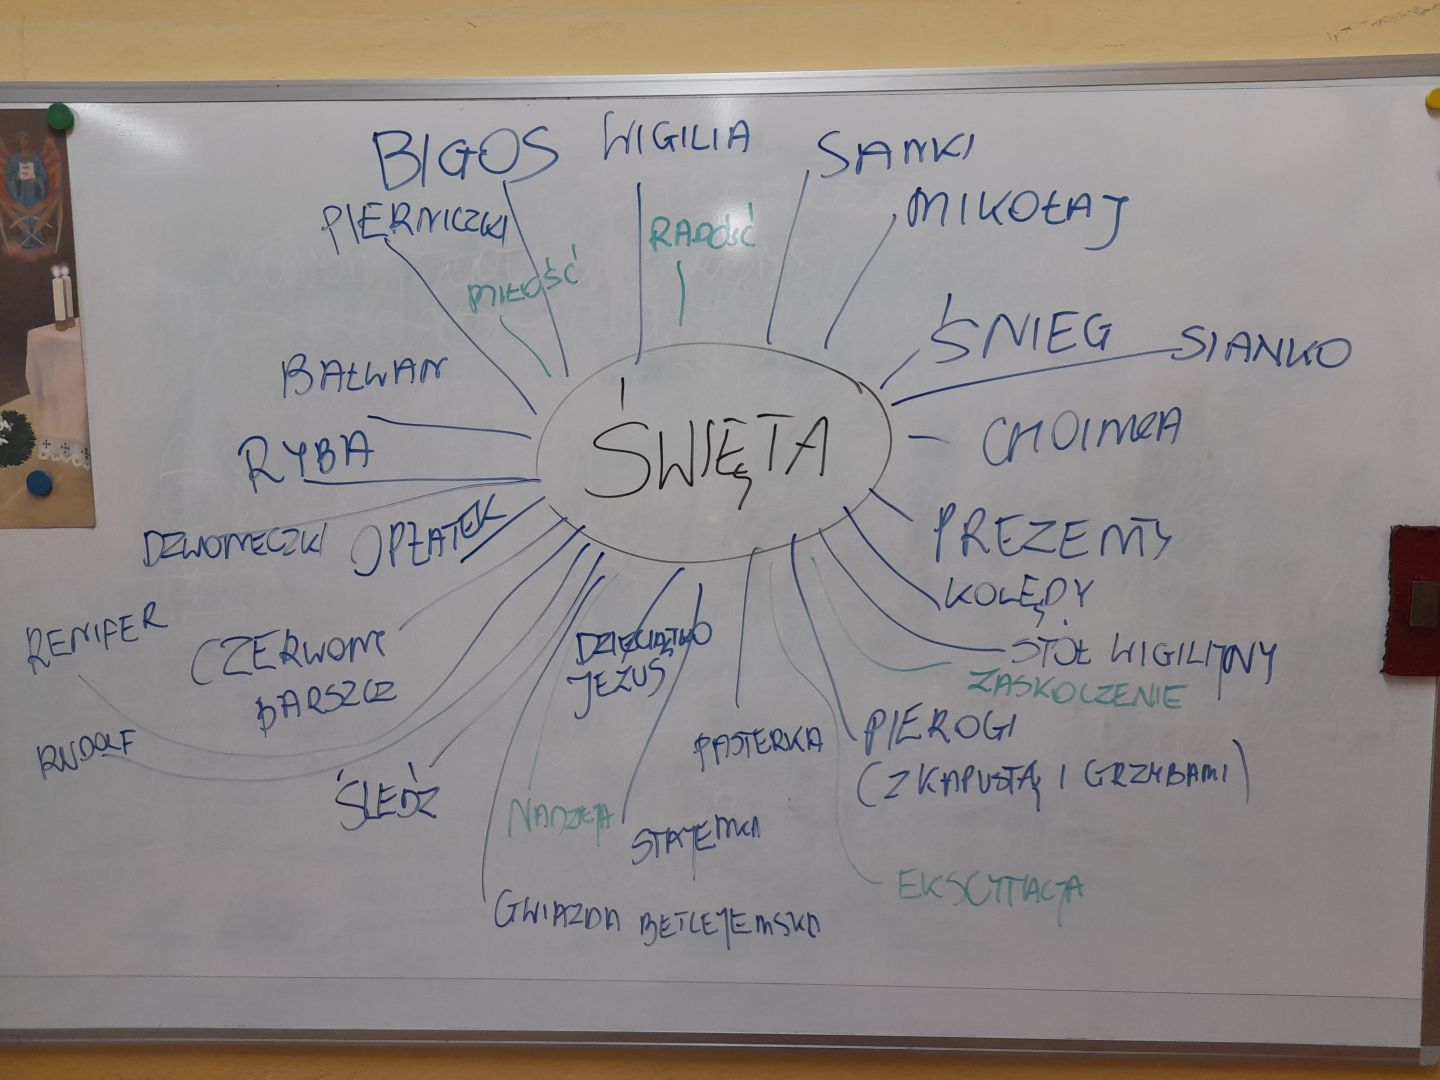 BIGOS
WIGILIA
SANKI
PIERNICZKI
MIŁOŚĆ
RADOŚĆ
MIKOŁAJ
ŚNIEG
SIANKO
BAŁWAN
ŚWIĘTA
CHOINKA
RYBA
DZWONECZKI
OPŁATEK
PREZENTY
KOLĘDY
RENIFER
CZERWONY
BARSZCZ
DZIECIĄTKO
JEZUS
STÓŁ WIGILIJNY
ZASKOCZENIE
RUDOLF
ŚLEDŹ
PASTERKA
PIEROGI
(Z KAPUSTĄ I GRZYBAMI)
NADZIEJA
STAJENKA
EKSCYTACJA
GWIAZDA BETLEJEMSKA